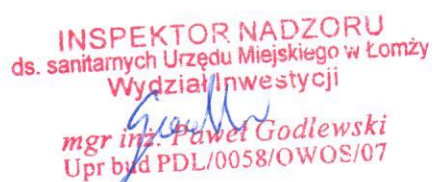 INSPEKTOR NADZORU
ds. sanitarnych Urzędu Miejskiego w Łomży
Wydział Inwestycji
mgr inż. Paweł Godlewski
Upr bud PDL/0058/OWOS/07